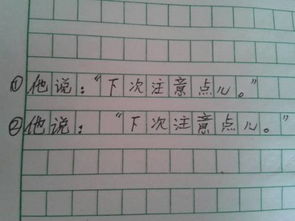 ①他说:“下次注意点儿。”
②他说: “下次注意点儿。”